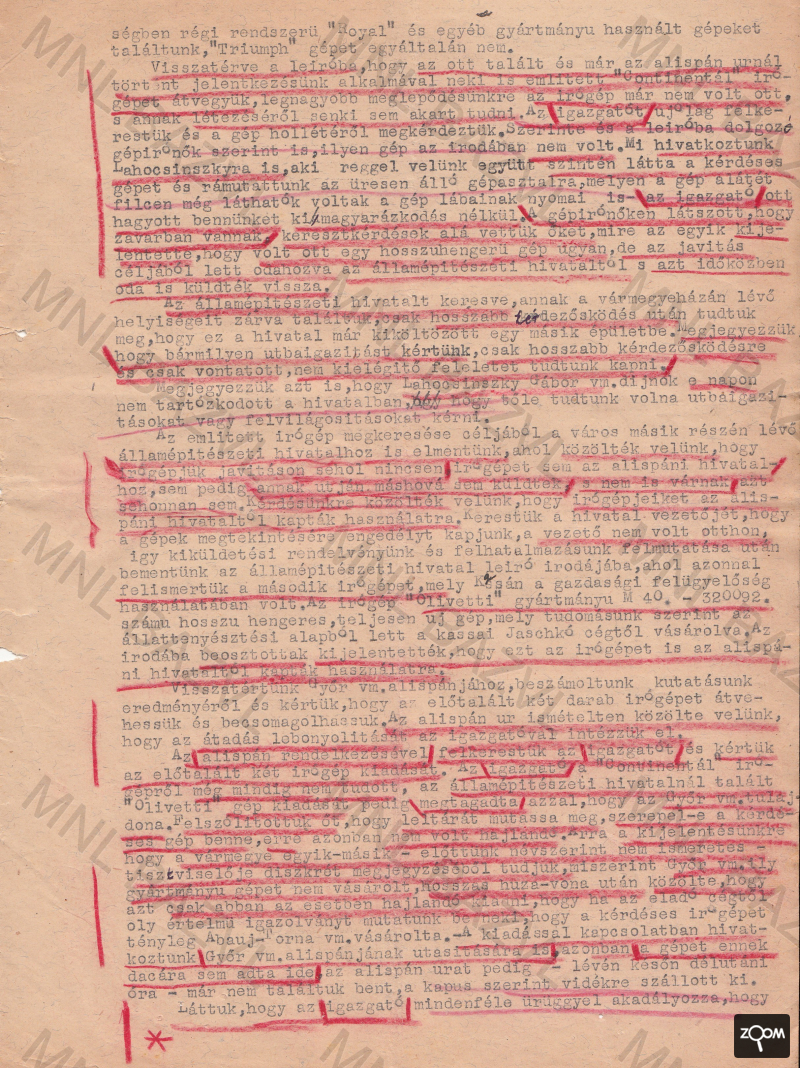 ségben régi rendszerü "Royal" és egyéb gyártmányu használt gépeket
találtunk,"Triumph" gépet egyáltalán nem.
Visszatérve a leiróba,hogy az ott talált és már az alispán urnál
történt jelentkezésünk alkalmával neki is emlitett "Continentál" iró-
gépet átvegyük,legnagyobb meglepődésünkre az irógép már nem volt ott,
s annak létezéséről senki sem akart tudni. Az igazgatót ujólag felke-
restük és a gép hollétéről megkérdeztük.Szerinte és a leiróba dolgozó
gépirónők szerint is,ilyen gép az irodában nem volt. Mi hivatkoztunk
Lahocsinszkyra is,aki reggel velünk együtt szintén látta a kérdéses
gépet és rámutattunk az üresen álló gépasztalra,melyen a gép alátét
filcen még láthatók voltak a gép lábainak nyomai is- az igazgató ott
hagyott bennünket ki/magyarázkodás nélkül. A gépirónőken látszott,hogy
zavarban vannak, keresztkérdések alá vettük őket,mire az egyik kije-
lentette,hogy volt ott egy hosszuhengerü gép ugyan,de az javitás
céljából lett odahozva az államépitészeti hivataltól s azt időközben
oda is küldték vissza.
Az államépitészeti hivatalt keresve,annak a vármegyeházán lévő
helyiségeit zárva találtuk,csak hosszabb kérdezősködés után tudtuk
meg,hogy ez a hivatal már kiköltözött egy másik épületbe.Megjegyezzük
hogy bármilyen utbaigazitást kértünk,csak hosszabb kérdezősködésre
és csak vontatott,nem kielégitő feleletet tudtunk kapni.
Megjegyezzük azt is,hogy Lahocsinszky Gábor vm.dijnok e napon
nem tartózkodott a hivatalban, hogy tőle tudtunk volna utbaigazi-
tásokat vagy felvilágositásokat kérni.
Az emlitett irógép megkeresése céljából a város másik részén lévő
államépitészeti hivatalhoz is elmentünk,ahol közölték velünk,hogy
irógépjük javitáson sehol nincsen irógépet sem az alispáni hivatal-
hoz,sem pedig annak utján máshová sem küldtek, s nem is várnak azt
sehonnan sem. Kérdésünkre közölték velünk,hogy irógépjeiket az alis-
páni hivataltól kapták használatra.Kerestük a hivatal vezetőjét,hogy
a gépek megtekintésére engedélyt kapjunk,a vezető nem volt otthon,
igy kiküldetési rendelvényünk és felhatalmazásunk felmutatása után
bementünk az államépitészeti hivatal leiró irodájába,ahol azonnal
felismertük a második irógépet,mely Kasán a gazdasági felügyelőség
használatában volt.Az irógép "Olivetti" gyártmányu M 40. - 320092.
számu hosszu hengeres,teljesen uj gép,mely tudomásunk szerint az
állattenyésztési alapból lett a kassai Jaschkó cégtől vásárolva.Az
irodába beosztottak kijelentették,hogy ezt az irógépet is az alispá-
ni hivataltól kapták használatra.
Visszatértünk Győr vm.alispánjához,beszámoltunk kutatásunk
eredményéről és kértük,hogy az előtalált két darab irógépet átve-
hessük és becsomagolhassuk.Az alispán ur ismételten közölte velünk,
hogy az átadás lebonyolitását az igazgatóval intézzük el.
Az alispán rendelkezésével felkerestük az igazgatót és kértük
az előtalált két irógép kiadását. Az igazgató a "Continentál" iró-
gépről még mindig nem tudott, az államépitészeti hivatalnál talált
"Olivetti" gép kiadását pedig megtagadta azzal,hogy az Győr vm.tulaj-
dona.Felszólitottuk őt,hogy leltárát mutassa meg,szerepel-e a kérdé-
ses gép benne,erre azonban nem volt hajlandó.Erra a kijelentésünkre
hogy a vármegye egyik-másik - előttünk névszerint nem ismeretes -
tisztviselője diszkrét megjegyzéséből tudjuk,miszerint Győr vm.ily
gyártmányu gépet nem vásárolt,hosszas huza-vona után közölte,hogy
azt csak abban az esetben hajlandó kiadni,hogy ha az eladó cégtől
oly értelmü igazolványt mutatunk be neki,hogy a kérdéses irógépet
tényleg Abauj-Torna vm.vásárolta.-A kiadással kapcsolatban hivat-
koztunk Győr vm.alispánjának utasitására is, azonban a gépet ennek
dacára sem adta ide, az alispán urat pedig - lévén késön délutáni
óra - már nem találtuk bent,a kapus szerint vidékre szállott ki.
Láttuk,hogy az igazgató mindenféle ürüggyel akadályozza,hogy